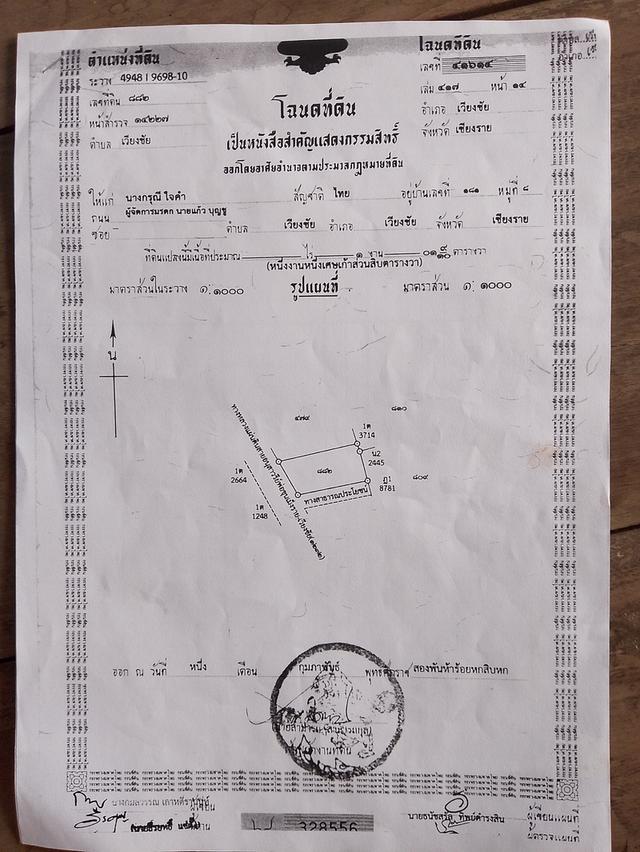 ตำแหน่งที่ดิน
ระวาง 4948 I 9698-10
เลขที่ดิน ๘๘๒
หน้าสำรวจ ๑๔๒๒๗
ตำบล เวียงชัย
โฉนดที่ดิน
เลขที่ ๔๑๖๑๔
เล่ม ๔๑๗ หน้า ๑๔
อำเภอ เวียงชัย
จังหวัด เชียงราย
โฉนดที่ดิน
เป็นหนังสือสำคัญแสดงกรรมสิทธิ์
ออกโดยอาศัยอำนาจตามประมวลกฎหมายที่ดิน
ให้แก่ นางกรุณี ใจคำ สัญชาติ ไทย อยู่บ้านเลขที่ ๑๘๑ หมู่ที่ ๘
ถนน ผู้จัดการมรดก นายแก้ว บุญชู
ซอย - ตำบล เวียงชัย อำเภอ เวียงชัย จังหวัด เชียงราย
ที่ดินแปลงนี้มีเนื้อที่ประมาณ - ไร่ ๑ งาน ๐๑ ๙/๑๐ ตารางวา
(หนึ่งงานหนึ่งเศษเก้าส่วนสิบตารางวา)
มาตราส่วนในระวาง ๑: ๑๐๐๐ รูปแผนที่ มาตราส่วน ๑: ๑๐๐๐
น
๔๗๔
๘๑๐
1ต
3714
น2
2445
๘๘๒
1ต
2664
ฎ1
8781
๘๐๙
ทางสาธารณประโยชน์
1ต
1248
ออก ณ วันที่ หนึ่ง เดือน กุมภาพันธ์ พุทธศักราช สองพันห้าร้อยหกสิบหก
ผู้เขียน
นายธนัชสวัล ทิพย์ดำรงสิน ผู้เขียนแผนที่
ผู้ตรวจแผนที่
328556